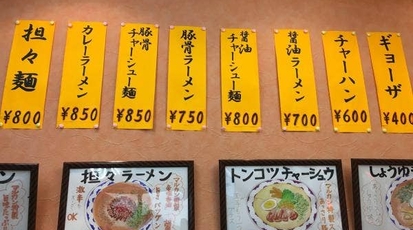 担々麺
¥800
カレーラーメン
¥850
豚骨
チャーシュー麺
¥850
豚骨ラーメン
¥750
醤油
チャーシュー麺
¥800
醤油ラーメン
¥700
チャーハン
¥600
ギョーザ
¥400
ン
担々ラーメン
激辛
OK
トンコツチャーシュウ
しょうゆ